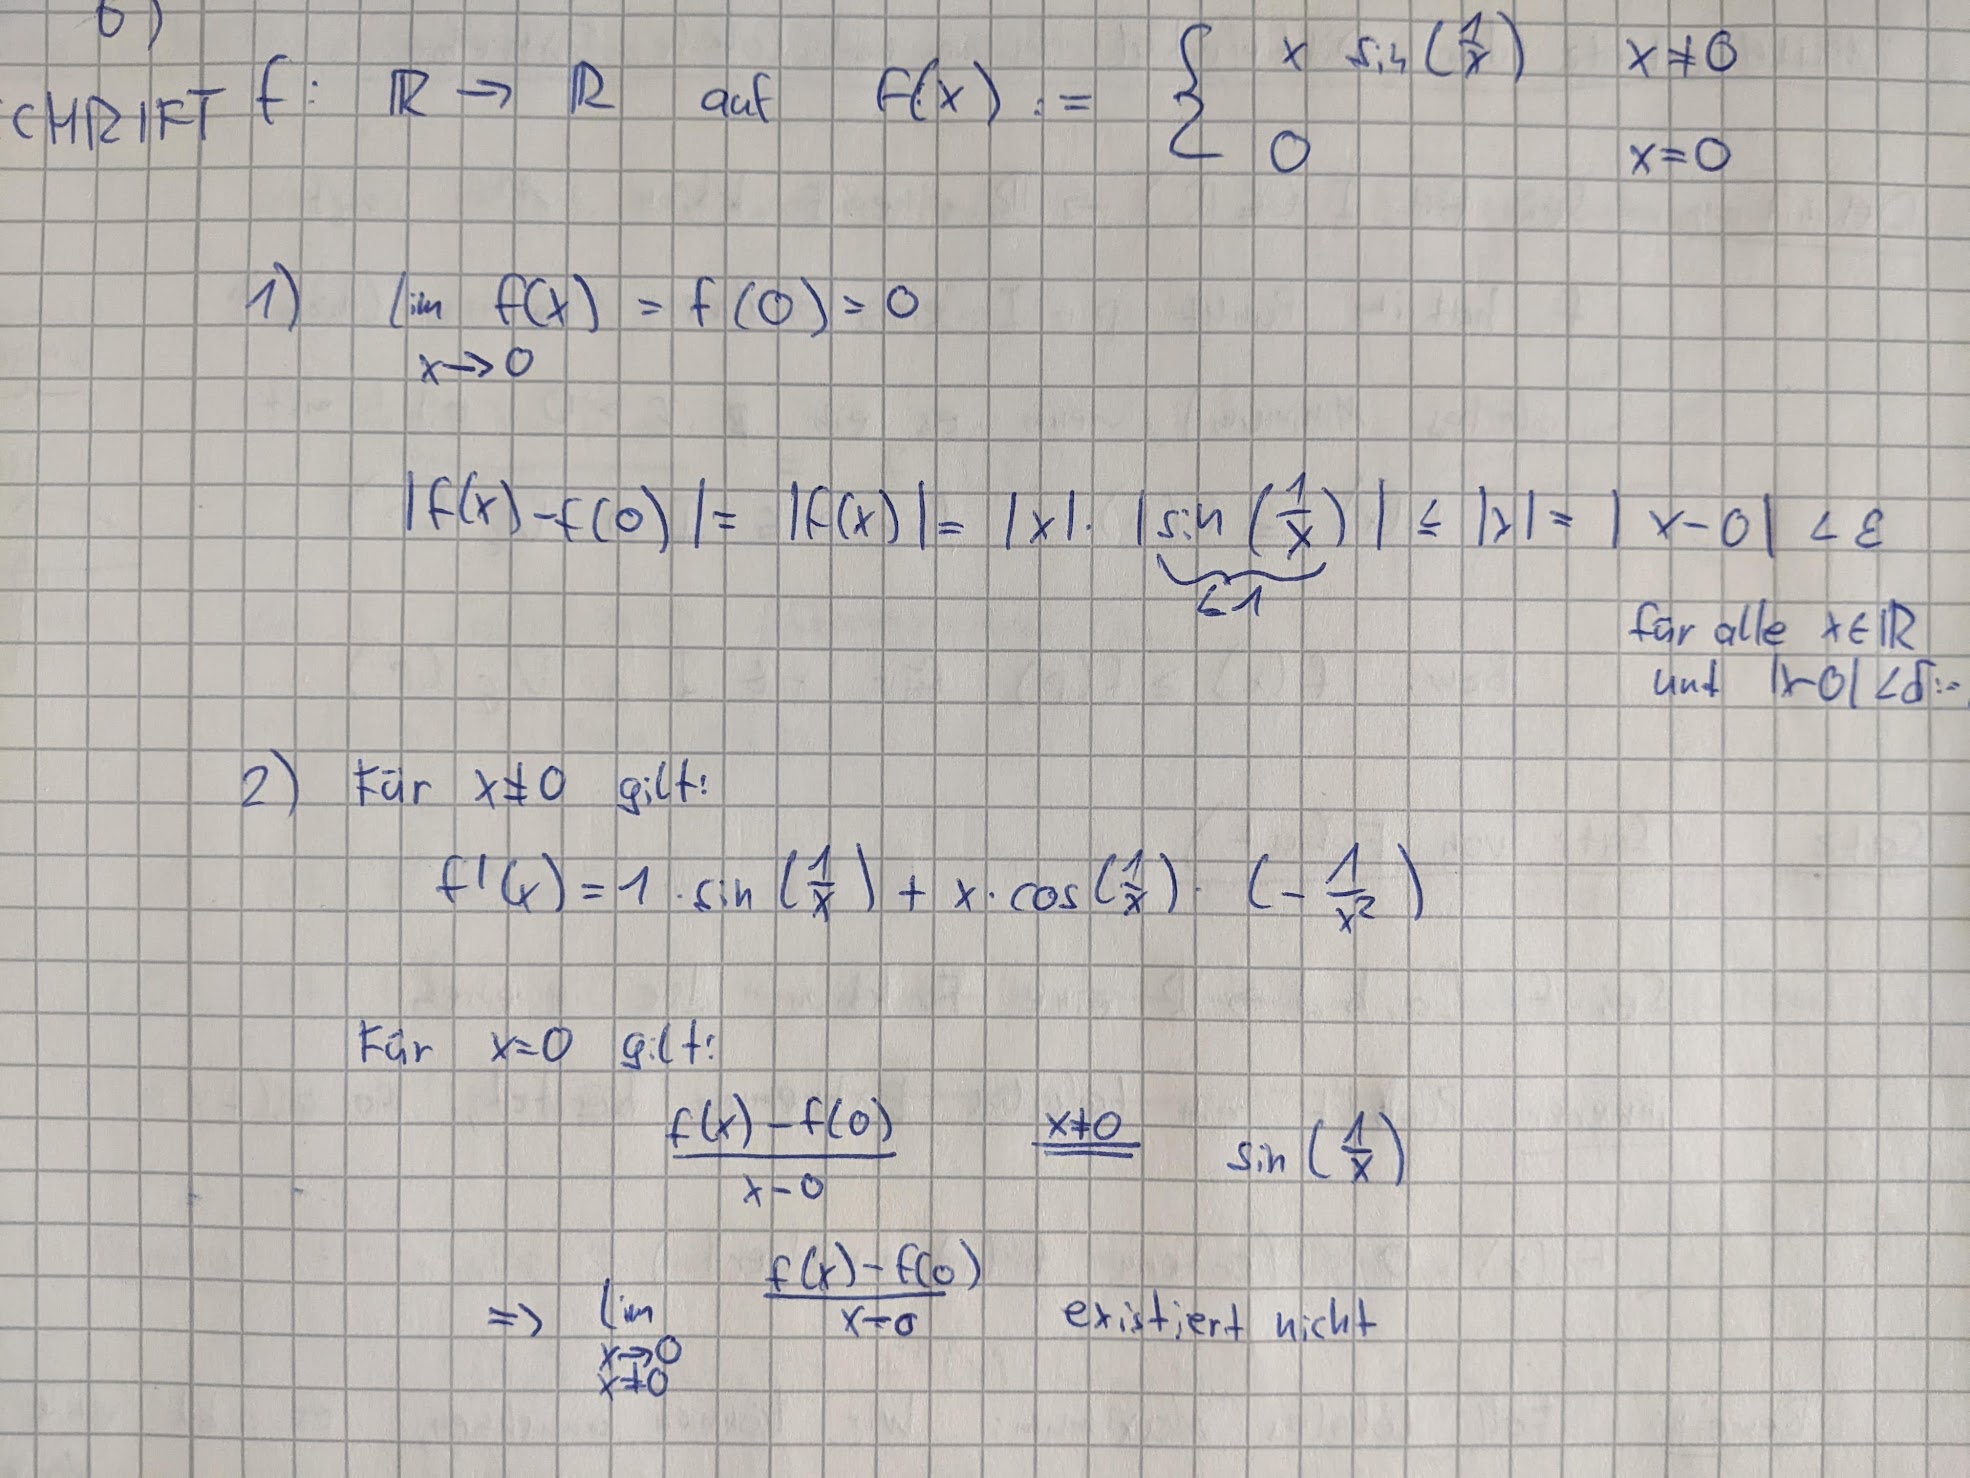 6)
CHRIFT f: ℝ → ℝ auf f(x) := { x sin(1/x) x≠0
0 x=0
1) lim f(x) = f(0) = 0
x→0
|f(x)-f(0)| = |f(x)| = |x| · |sin(1/x)| ≤ |x| = |x-0| < ε
≤1
für alle x∈ℝ
und |x-0| < δ:=
2) Für x≠0 gilt:
f'(x) = 1 · sin(1/x) + x · cos(1/x) · (-1/x²)
Für x=0 gilt:
(f(x)-f(0))/(x-0) x≠0 = sin(1/x)
=> lim (f(x)-f(0))/(x-0) existiert nicht
x→0
x≠0